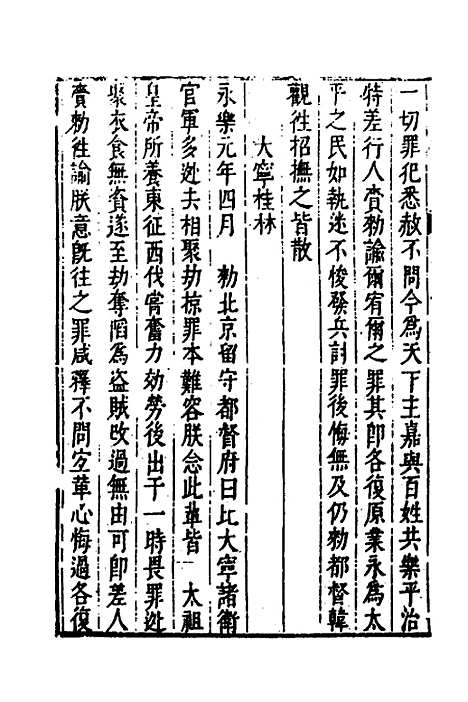 一切罪犯悉赦不問今爲天下主嘉與百姓共樂平治
特差行人賫勑諭爾宥爾之罪其即各復原業永爲太
平之民如執迷不悛發兵討罪後悔無及仍勑都督韓
觀徃招撫之皆散
大寧桂林
永樂元年四月　勑北京留守都督府曰比大寧諸衛
官軍多迯去相聚刼掠罪本難容朕念此輩皆　太祖
皇帝所養東征西伐嘗奮力効勞後出于一時畏罪迯
聚衣食無資遂至劫奪陷爲盗賊改過無由可即差人
賫勑徃諭朕意旣往之罪咸釋不問宜革心悔過各復